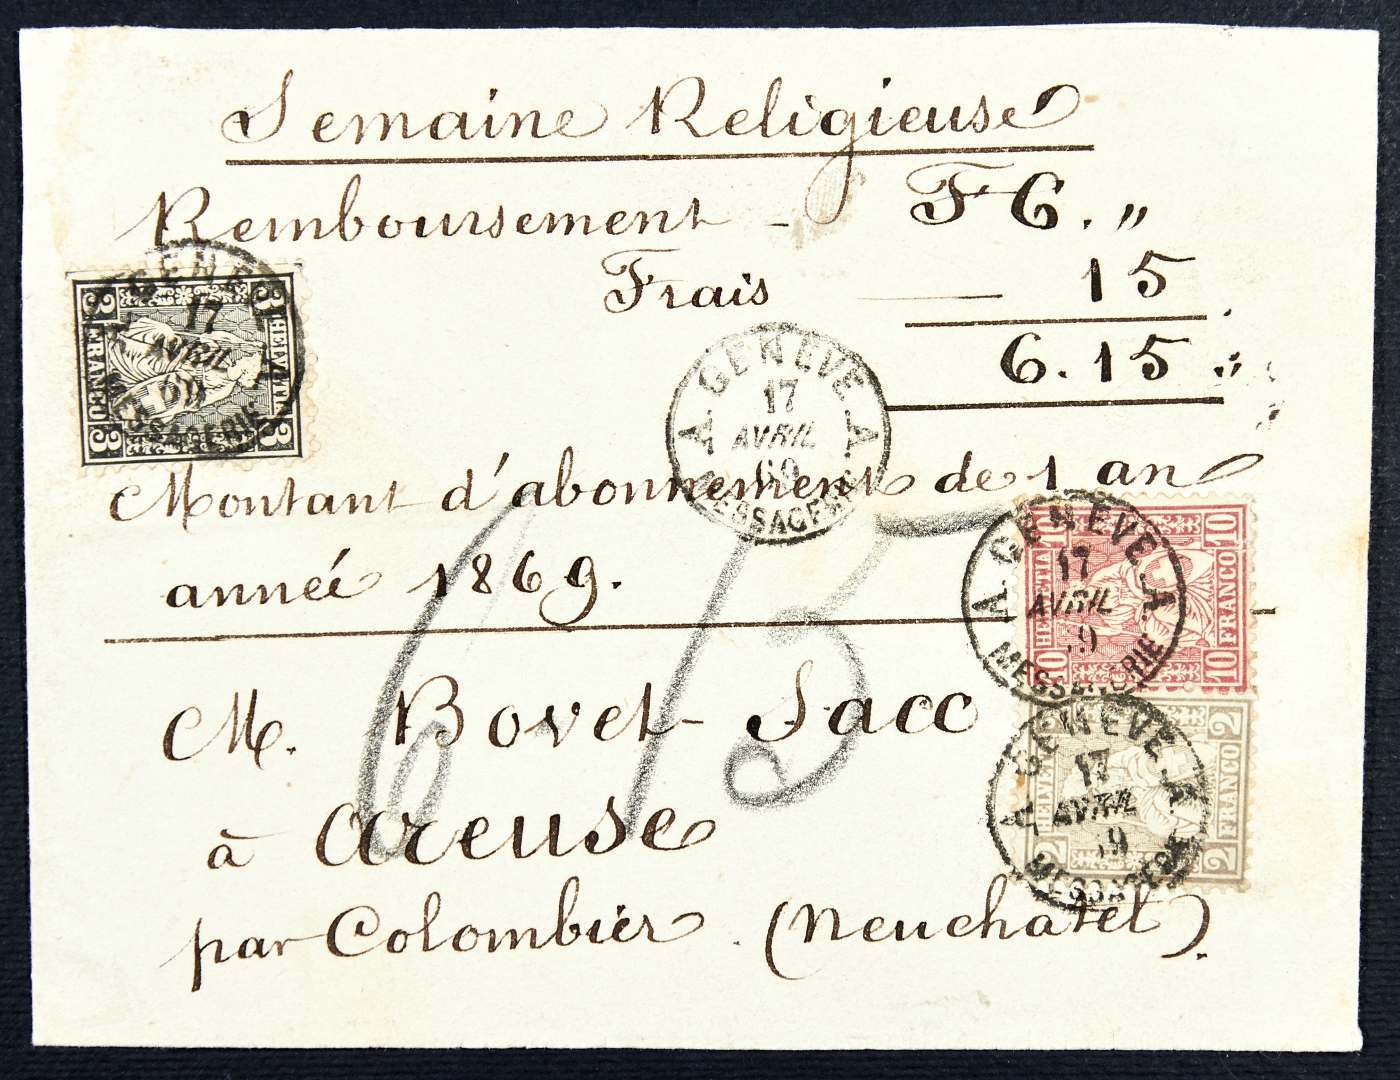 Semaine Religieuse
Remboursement - F 6. „
Frais — 15
6.15
GENEVE
17
AVRIL
69
MESSAGERIE
3 HELVETIA 3
3 FRANCO 3
A GENEVE A
17
AVRIL
69
MESSAGERIE
Montant d'abonnement de 1 an
année 1869.
615
A GENEVE A
17
AVRIL
69
MESSAGERIE
10 HELVETIA 10
10 FRANCO 10
M. Bovet-Sacc
A GENEVE A
17
AVRIL
69
MESSAGERIE
2 HELVETIA
2 FRANCO 2
à Areuse
par Colombier. (Neuchatel).